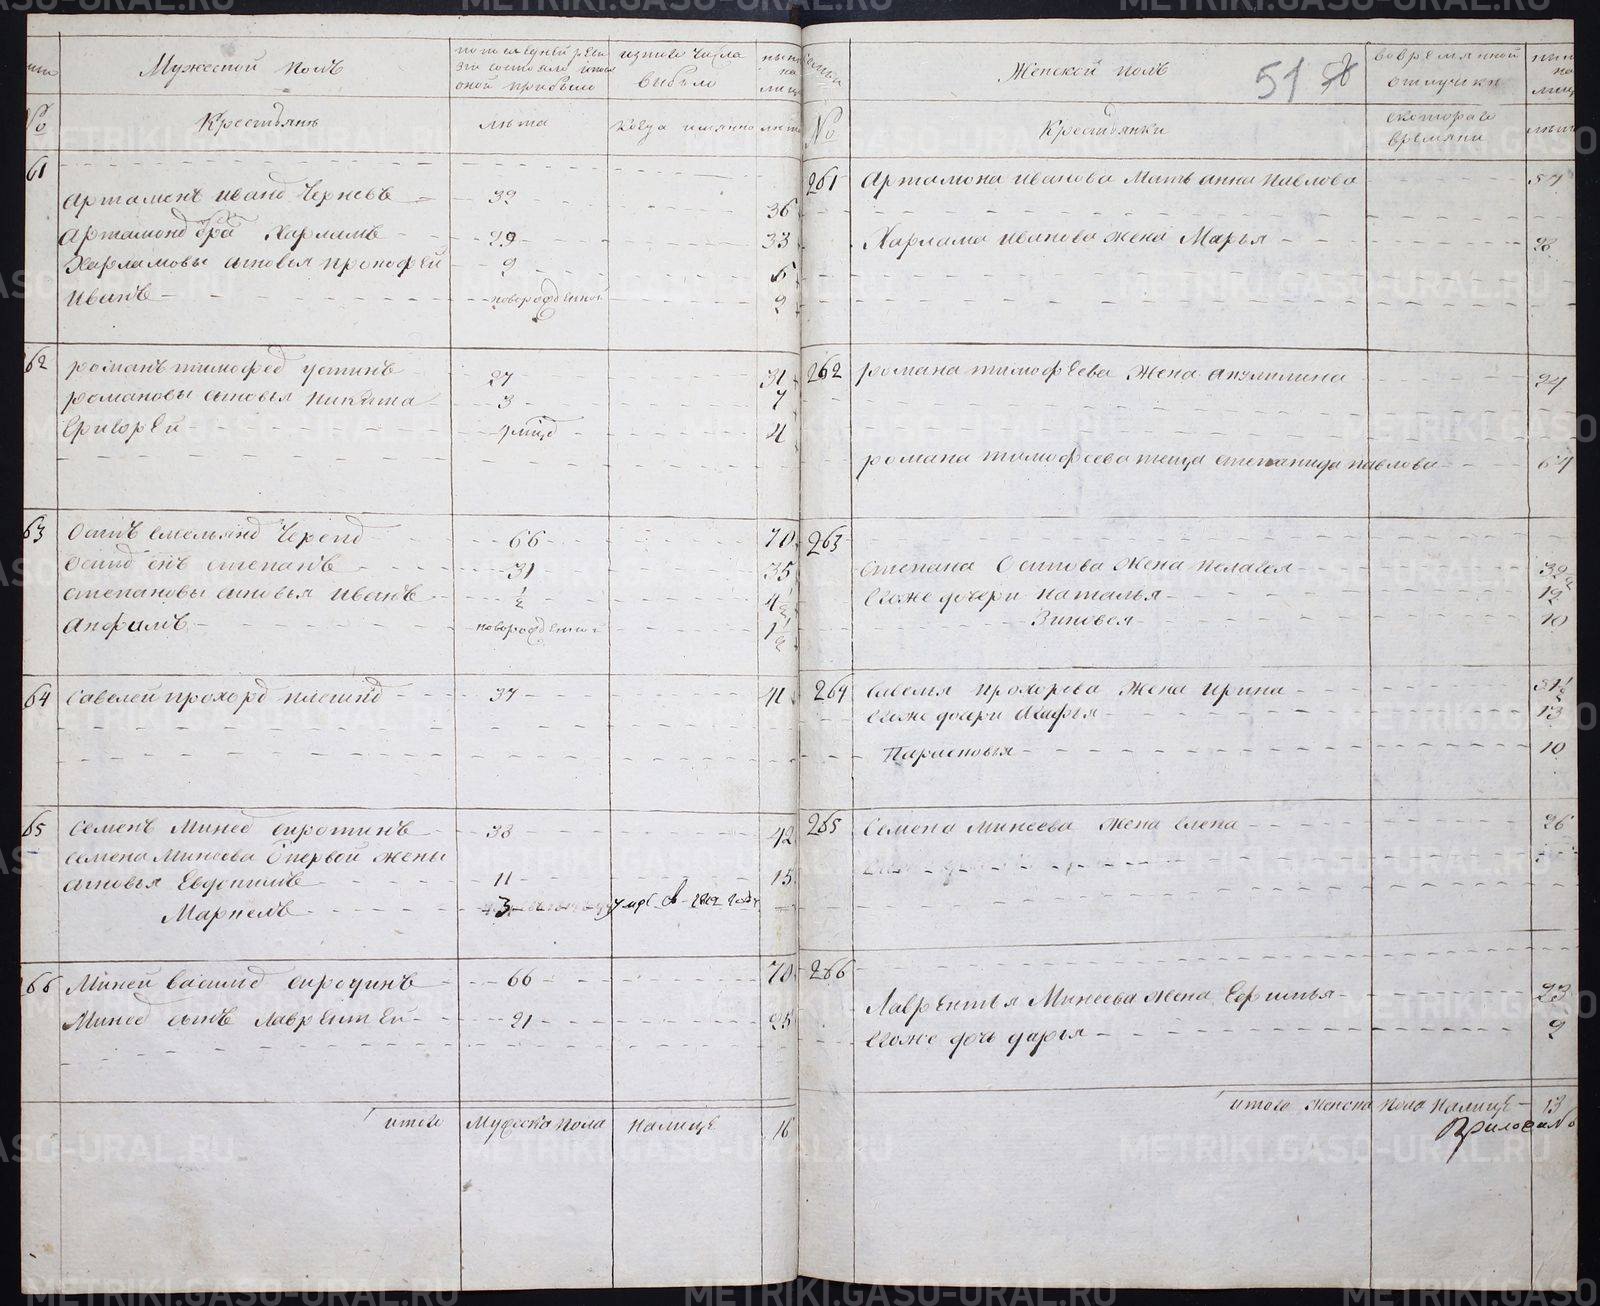 Мужеской полъ
по последней реви
зии состояло и после
оной прибыло
изтого числа
выбыло
ныне
на
лице
№
Крестьянъ
лета
когда имянно
лета
61
Артаменъ Иванов Черневъ 32 36
Артамонов брат Харламъ 29 33
Харламовы сыновья Прокофей 2 6
Иванъ новорожденной 2
62
Романъ Тимофеев Устинъ 27 31
Романовы сыновья Никита 3 7
Григорей 4
63
Осипъ Емельянов Череп 66 70
Осипов сынъ Степанъ 31 35
Степановы сыновья Иванъ ½ 4½
Анфимъ новорожденной 1½
64
Савелей Прохоров 37 41
65
Семенъ Минеев Сиротинъ 38 42
Семена Минеева о первой жены
сыновья Евдокимъ 11 15
Маркелъ 3 умре в 1812 году
66
Миней Васильев Сиротинъ 66 70
Минеев сынъ Лаврентей 21 25
итого Мужеска пола налице 16
Женской полъ
51
вовремянной
отлучки
ныне
на
лице
№
Крестьянки
скотораго
времяни
лета
261
Артамона Иванова мать Анна Павлова 57
Харлама Иванова жена Марья 28
262
Романа Тимофеева жена Акулина 24
Романа Тимофеева теща Степанида Павлова 64
263
Степана Осипова жена Пелагея 32½
Егоже дочери Наталья 12
Зиновея 10
264
Савелья Прохорова жена Ирина 31½
Егоже дочери Агафья 13
Парасковья 10
265
Семена Минеева жена Елена 26
266
Лаврентья Минеева жена Ефимья 23
Егоже дочь Дарья 2
итого женска пола налице 13